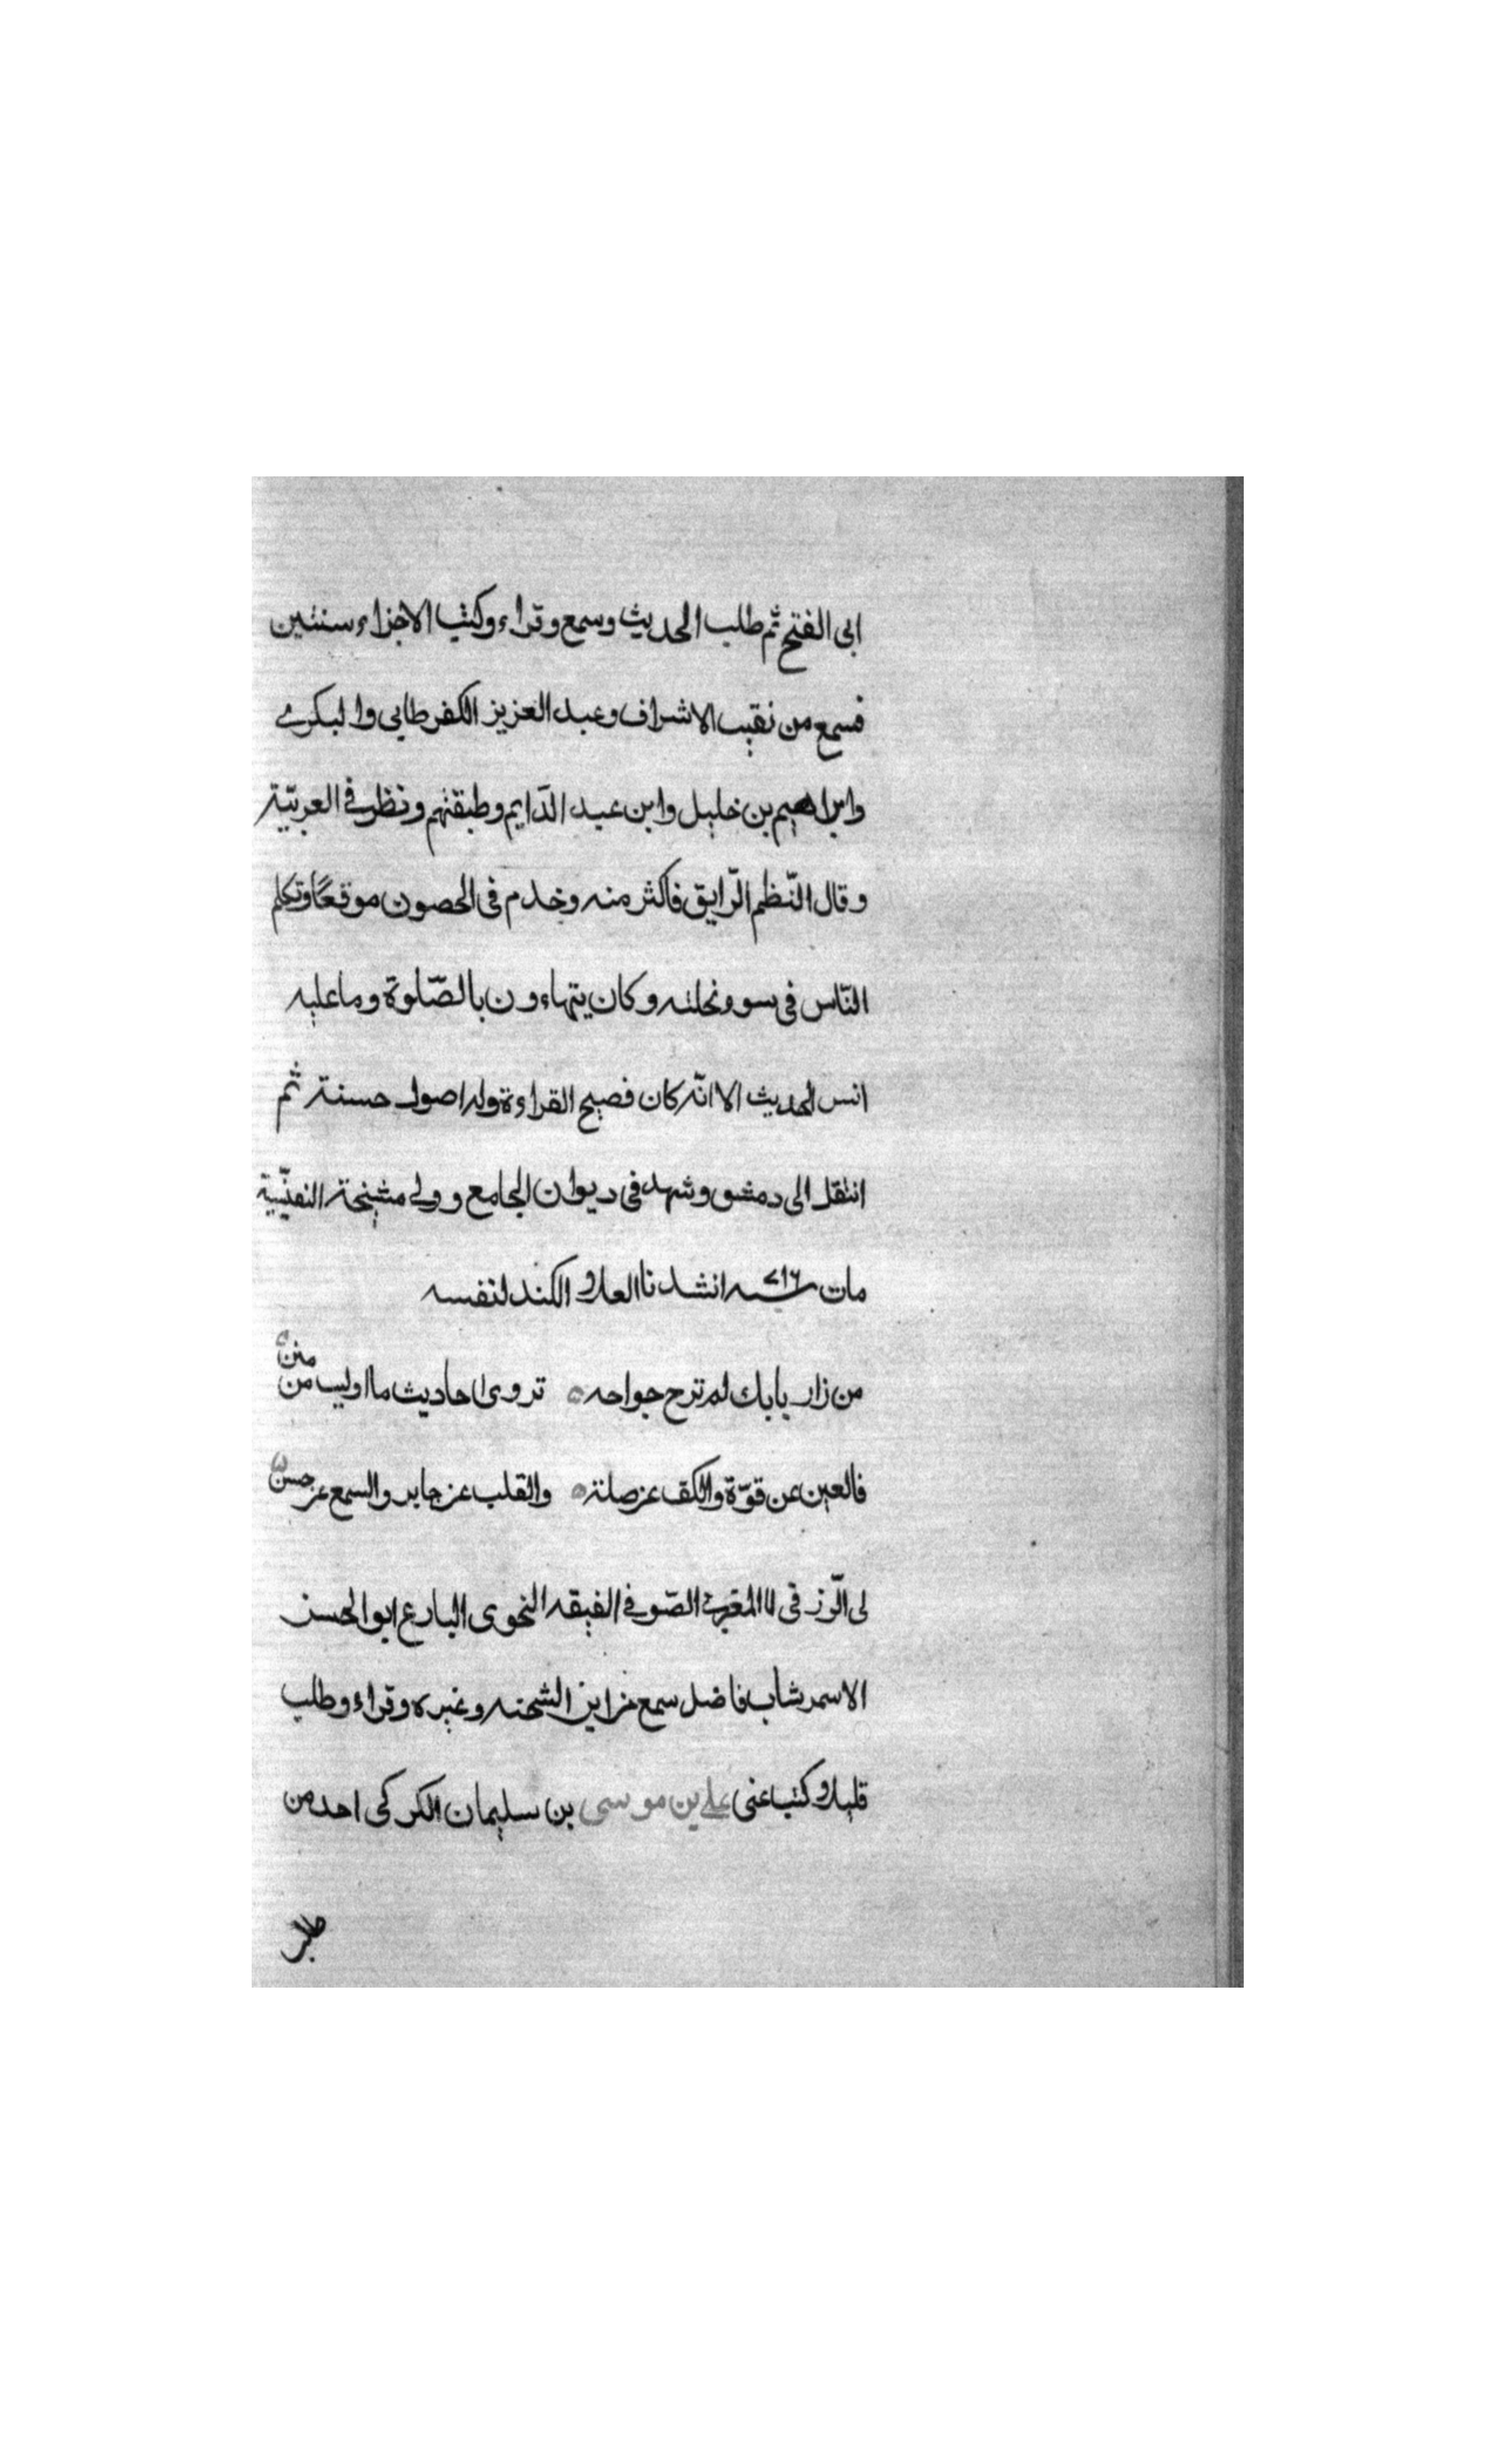 ابى الفتح ثم طلب الحديث وسمع وقراء وكتب الاجزاء سنتين
فسمع من نقيب الاشراف وعبد العزيز الكفرطابى والبكرى
وابراهيم بن خليل وابن عبد الدّايم وطبقتهم ونظر فى العربيّة
وقال النّظم الرّايق فاكثر منه وخدم فى الحصون موقعًا وتكلم
النّاس فى سوء نحلته وكان يتهاءون بالصّلوة وما عليه
انس الحديث الا انّه كان فصيح القراءة وله اصول حسنة ثم
انتقل الى دمشق وشهد فى ديوان الجامع وولى مشيخة النفيسّية
مات سنه ٧١٦ انشدنا العلاء الكند لنفسه
من زار بابك لم تبرح جواحه تروى احاديث ما اوليت من منن
فالعين عن قوّة والكف عن صلة والقلب عن جابر والسمع عن حسن
لى الّرزقى المقرى الصّوفى الفيقه النحوى البارع ابو الحسن
الاسمر شاب فاضل سمع من ابن الشحنه وغيره وقراء وطلب
قليلا وكتب عنى على بن موسى بن سليمان الكركى احد من